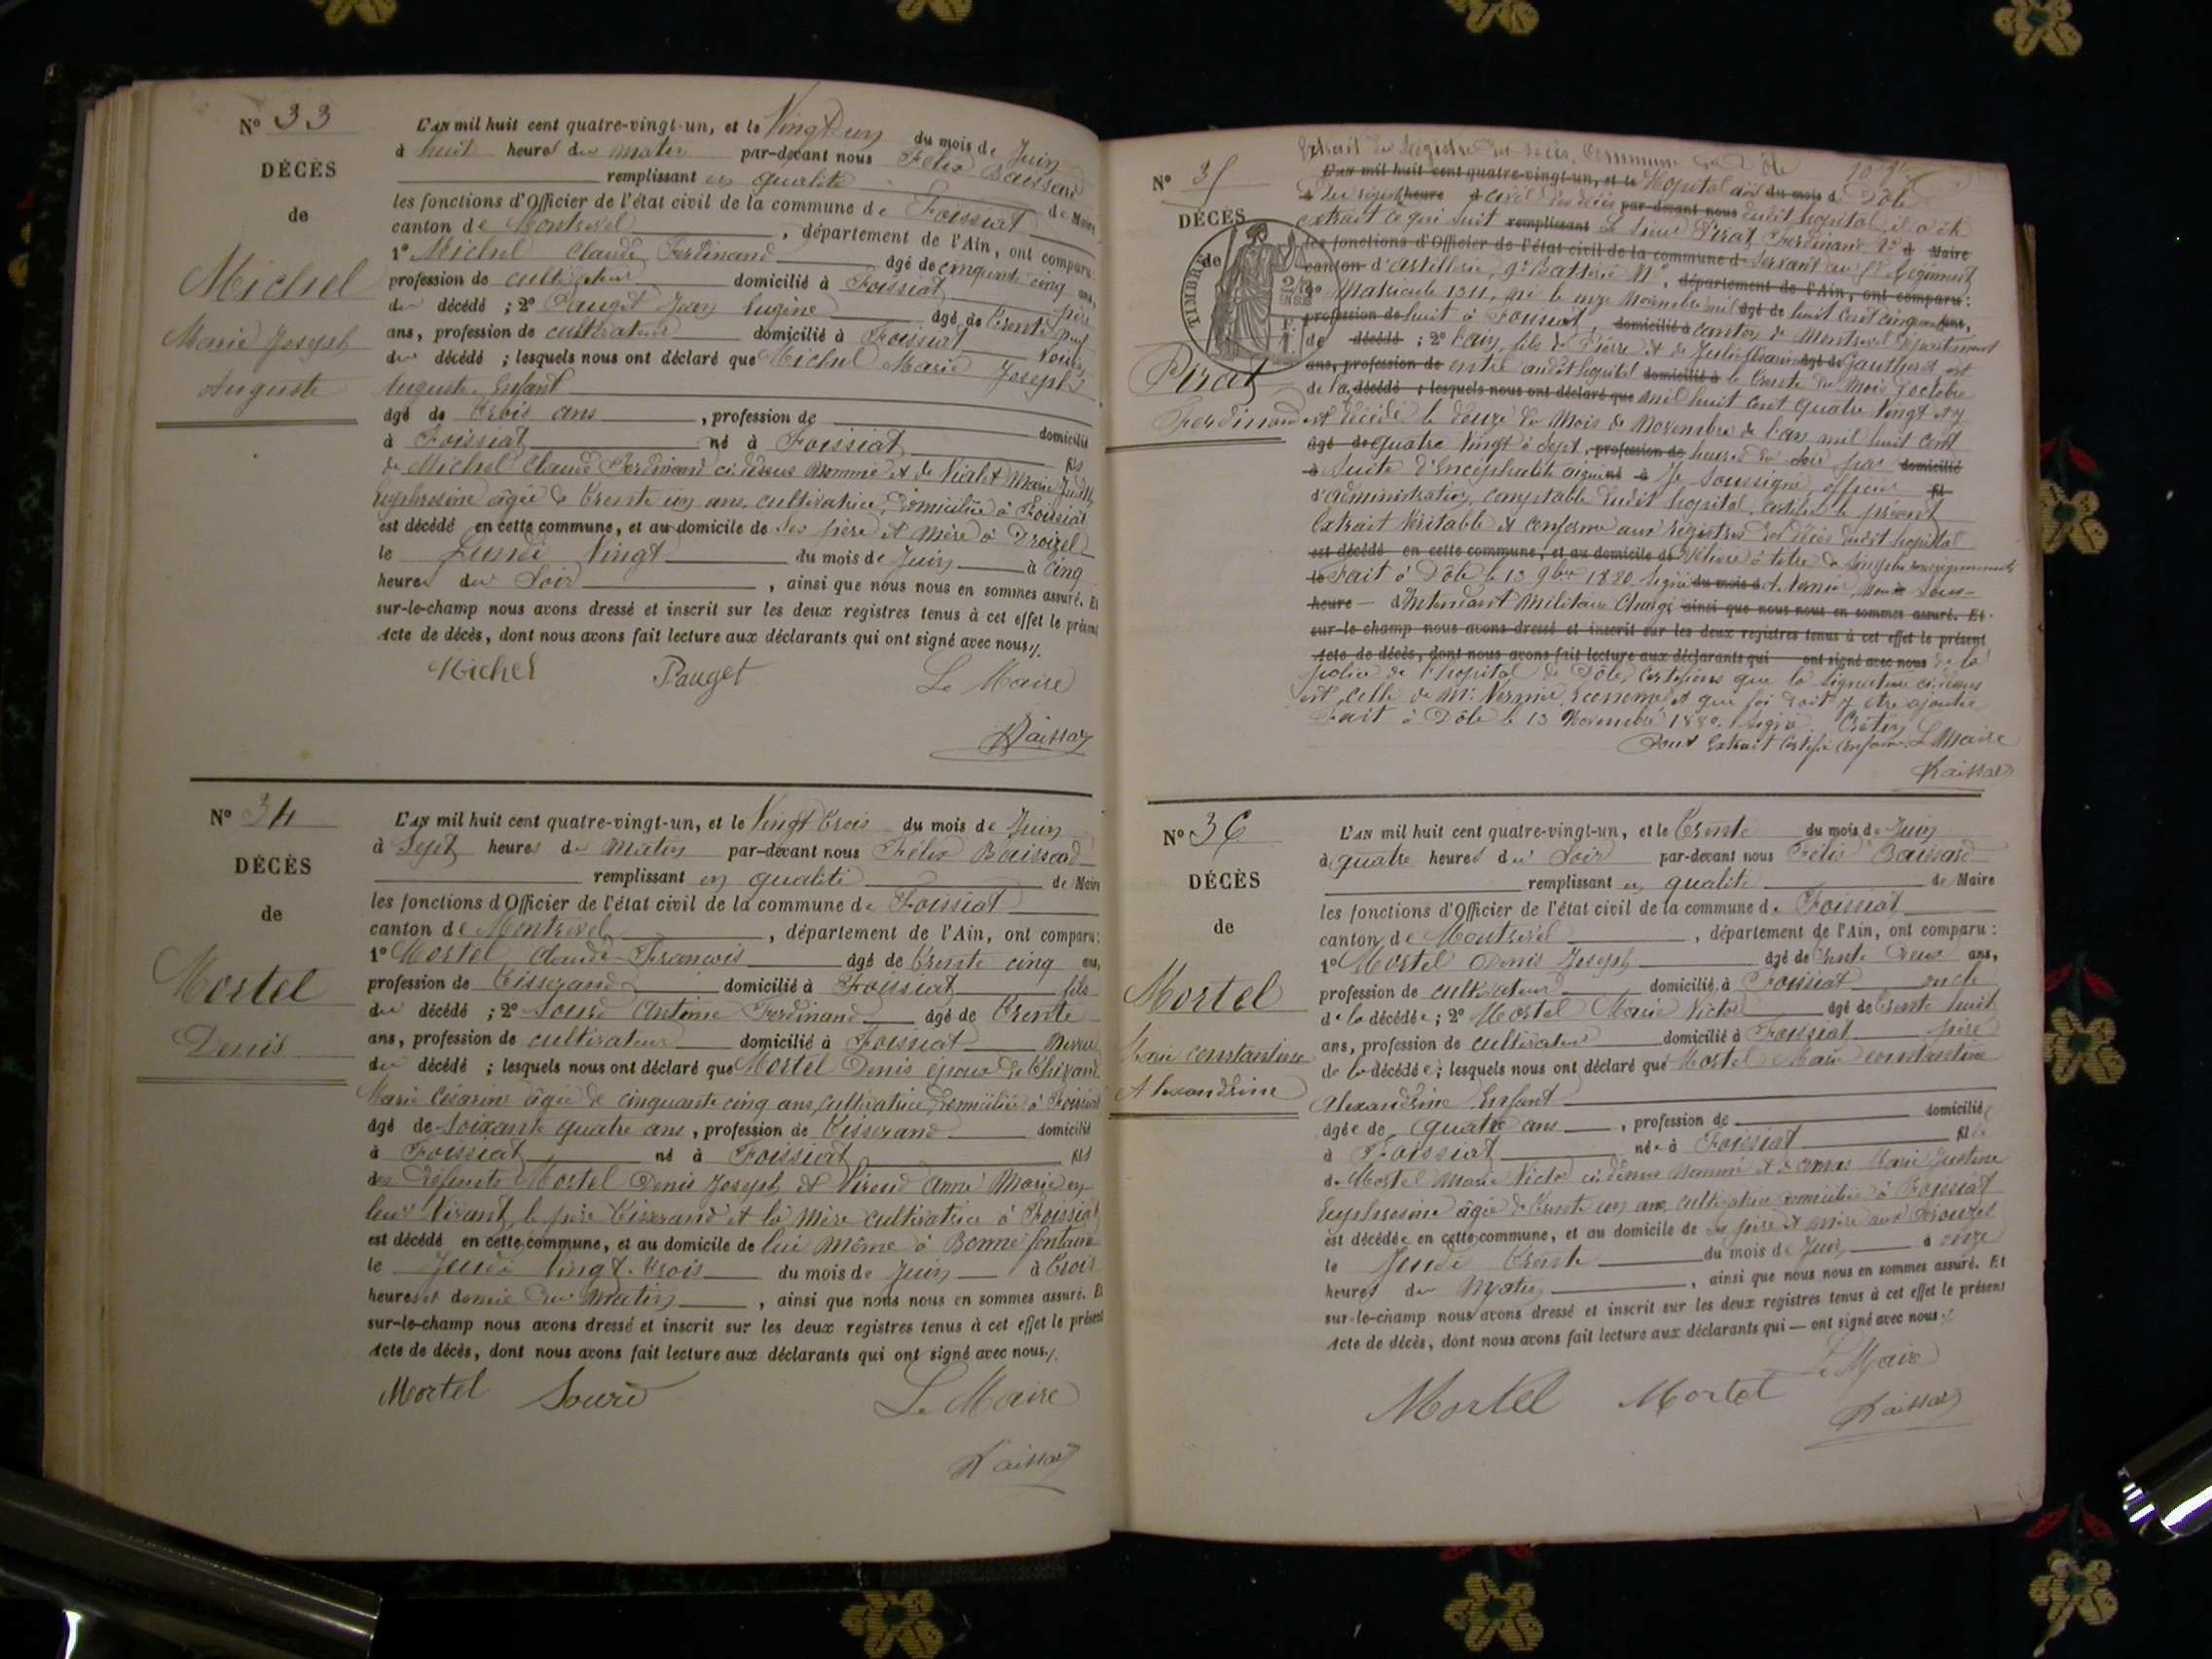 N° 33
DÉCÈS
de
Michel
Marie Joseph
Auguste
L'AN mil huit cent quatre-vingt-un, et le Vingt un du mois de Juin
à huit heures du matin par-devant nous Félix Baissard
remplissant en qualité de Maire
les fonctions d'Officier de l'état civil de la commune de Foissiat
canton de Montrevel, département de l'Ain, ont comparu:
1° Michel Claude Ferdinand âgé de cinquante cinq ans,
profession de cultivateur domicilié à Foissiat père
du décédé ; 2° Pauget Jean Eugène âgé de trente neuf
ans, profession de cultivateur domicilié à Foissiat voisin
du décédé ; lesquels nous ont déclaré que Michel Marie Joseph
Auguste Enfant
âgé de trois ans, profession de domicilié
à Foissiat né à Foissiat fils
de Michel Claude Ferdinand ci dessus nommé et de Vialet Marie Judith
Euphrosine âgée de trente un ans, cultivatrice, domiciliée à Foissiat
est décédé en cette commune, et au domicile de ses père et mère à Droizel
le Lundi Vingt du mois de Juin à cinq
heures du Soir, ainsi que nous nous en sommes assuré. Et
sur-le-champ nous avons dressé et inscrit sur les deux registres tenus à cet effet le présent
Acte de décès, dont nous avons fait lecture aux déclarants qui ont signé avec nous.
Michel Pauget Le Maire
Baissard
N° 34
DÉCÈS
de
Mortel
Denis
L'AN mil huit cent quatre-vingt-un, et le Vingt trois du mois de Juin
à Sept heures du Matin par-devant nous Félix Baissard
remplissant en qualité de Maire
les fonctions d'Officier de l'état civil de la commune de Foissiat
canton de Montrevel, département de l'Ain, ont comparu:
1° Mortel Claude François âgé de trente cinq ans,
profession de tisserand domicilié à Foissiat fils
du décédé ; 2° Sourd Antime Ferdinand âgé de trente
ans, profession de cultivateur domicilié à Foissiat neveu
du décédé ; lesquels nous ont déclaré que Mortel Denis époux de
Marie Césarine âgée de cinquante cinq ans, cultivatrice, domiciliée à Foissiat
âgé de soixante quatre ans, profession de tisserand domicilié
à Foissiat né à Foissiat fils
des défunts Mortel Denis Joseph et Anne Marie en
leur vivant, le père tisserand et la mère cultivatrice à Foissiat
est décédé en cette commune, et au domicile de lui même à Bonne fontaine
le Jeudi Vingt-trois du mois de Juin à trois
heures et demie du matin, ainsi que nous nous en sommes assuré. Et
sur-le-champ nous avons dressé et inscrit sur les deux registres tenus à cet effet le présent
Acte de décès, dont nous avons fait lecture aux déclarants qui ont signé avec nous.
Mortel Sourd Le Maire
Baissard
N° 35
DÉCÈS
de
TIMBRE
Pirat
Ferdinand
Extrait du Registre des décès. Commune de Dôle
L'AN mil huit cent quatre-vingt-un, et le Hopital civil du mois de Dôle
à Du registre heure des décès par-devant nous dudit hopital, il a été
extrait ce qui suit remplissant Le Sieur Pirat Ferdinand Maire
les fonctions d'Officier de l'état civil de la commune de Servant au Régiment
canton d'artillerie, 9e Batterie N°, département de l'Ain, ont comparu:
Matricule 1311, né le onze Novembre mil âgé de huit cent cinquante ans,
profession de huit à Foissiat, domicilié à canton de Montrevel département
de décédé ; 2° l'ain, fils de Pierre et de âgé de est
ans, profession de entré audit hopital domicilié à le trente du mois d'octobre
de l'an décédé ; lesquels nous ont déclaré que mil huit cent quatre vingt et y
est décédé le douze du mois de Novembre de l'an mil huit cent
âgé de quatre vingt à sept, profession de heures du soir par domicilié
à suite d'Encéphalite aigue né à Je soussigné, officier fil
d'administration, comptable dudit hopital, certifie le présent
Extrait véritable et conforme aux registres des décès dudit hopital
est décédé en cette commune, et au domicile de Délivré à titre de simple renseignements
le Fait à Dôle le 13 9bre 1880. Signé du mois de Vernier, à Sous-
heure d'Intendant militaire Chargé ainsi que nous nous en sommes assuré. Et
sur-le champ nous avons dressé et inscrit sur les deux registres tenus à cet effet le présent
Acte de décès, dont nous avons fait lecture aux déclarants qui ont signé avec nous de la
police de l'hopital de Dôle, certifions que la signature ci-dessus
est celle de Mr Vernier, Econome et que foi doit y être ajoutée
Fait à Dôle le 13 Novembre 1880. Signé
Pour Extrait Certifié Conforme Le Maire
Baissard
N° 36
DÉCÈS
de
Mortel
Marie Constantine
Alexandrine
L'AN mil huit cent quatre-vingt-un, et le trente du mois de Juin
à quatre heures du Soir par-devant nous Félix Baissard
remplissant en qualité de Maire
les fonctions d'Officier de l'état civil de la commune de Foissiat
canton de Montrevel, département de l'Ain, ont comparu:
1° Mortel Denis Joseph âgé de trente deux ans,
profession de cultivateur domicilié à Foissiat oncle
de la décédée ; 2° Mortel Marie Victor âgé de trente huit
ans, profession de cultivateur domicilié à Foissiat père
de la décédée ; lesquels nous ont déclaré que Mortel Marie Constantine
Alexandrine Enfant
âgée de quatre ans, profession de domiciliée
à Foissiat née à Foissiat fille
de Mortel Marie Victor ci dessus nommé et de Marie Justine
Euphrosine âgée de trente un ans, cultivatrice domiciliée à Foissiat
est décédée en cette commune, et au domicile de ses père et mère aux
le Jeudi trente du mois de Juin à onze
heures du Matin, ainsi que nous nous en sommes assuré. Et
sur-le-champ nous avons dressé et inscrit sur les deux registres tenus à cet effet le présent
Acte de décès, dont nous avons fait lecture aux déclarants qui — ont signé avec nous
Mortel Mortel Le Maire
Baissard